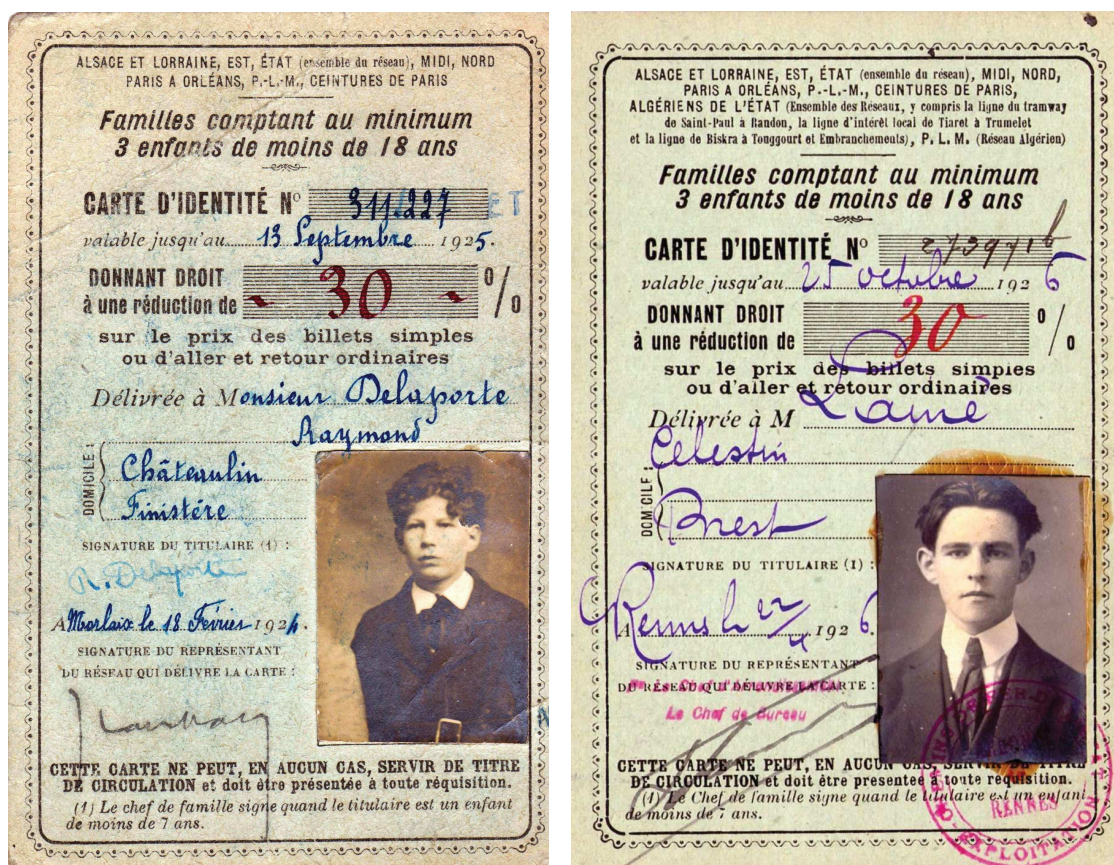 ALSACE ET LORRAINE, EST, ÉTAT (ensemble du réseau), MIDI, NORD
PARIS A ORLÉANS, P.-L.-M., CEINTURES DE PARIS
Familles comptant au minimum
3 enfants de moins de 18 ans
CARTE D'IDENTITÉ Nº 311.227
valable jusqu'au 13 Septembre 1925.
DONNANT DROIT
à une réduction de - 30 - %
sur le prix des billets simples
ou d'aller et retour ordinaires
Délivrée à Monsieur Delaporte
Raymond
DOMICILE
Châteaulin
Finistère
SIGNATURE DU TITULAIRE (1) :
R. Delaporte
A Morlaix le 18 Février 1924.
SIGNATURE DU REPRÉSENTANT
DU RÉSEAU QUI DÉLIVRE LA CARTE :
CETTE CARTE NE PEUT, EN AUCUN CAS, SERVIR DE TITRE
DE CIRCULATION et doit être présentée à toute réquisition.
(1) Le chef de famille signe quand le titulaire est un enfant
de moins de 7 ans.
ALSACE ET LORRAINE, EST, ÉTAT (ensemble du réseau), MIDI, NORD,
PARIS A ORLÉANS, P.-L.-M., CEINTURES DE PARIS,
ALGÉRIENS DE L'ÉTAT (Ensemble des Réseaux, y compris la ligne du tramway
de Saint-Paul à Randon, la ligne d'intérêt local de Tiaret à Trumelet
et la ligne de Biskra à Touggourt et Embranchements), P. L. M. (Réseau Algérien)
Familles comptant au minimum
3 enfants de moins de 18 ans
CARTE D'IDENTITÉ Nº
valable jusqu'au 25 octobre 1926
DONNANT DROIT
à une réduction de 30 %
sur le prix des billets simples
ou d'aller et retour ordinaires
Délivrée à M Lainé
Célestin
DOMICILE
Brest
SIGNATURE DU TITULAIRE (1) :
A Rennes le 1926.
SIGNATURE DU REPRÉSENTANT
DU RÉSEAU QUI DÉLIVRE LA CARTE :
Le Chef de Bureau
CETTE CARTE NE PEUT, EN AUCUN CAS, SERVIR DE TITRE
DE CIRCULATION et doit être présentée à toute réquisition.
(1) Le Chef de famille signe quand le titulaire est un enfant
de moins de 7 ans.
RENNES
EXPLOITATION